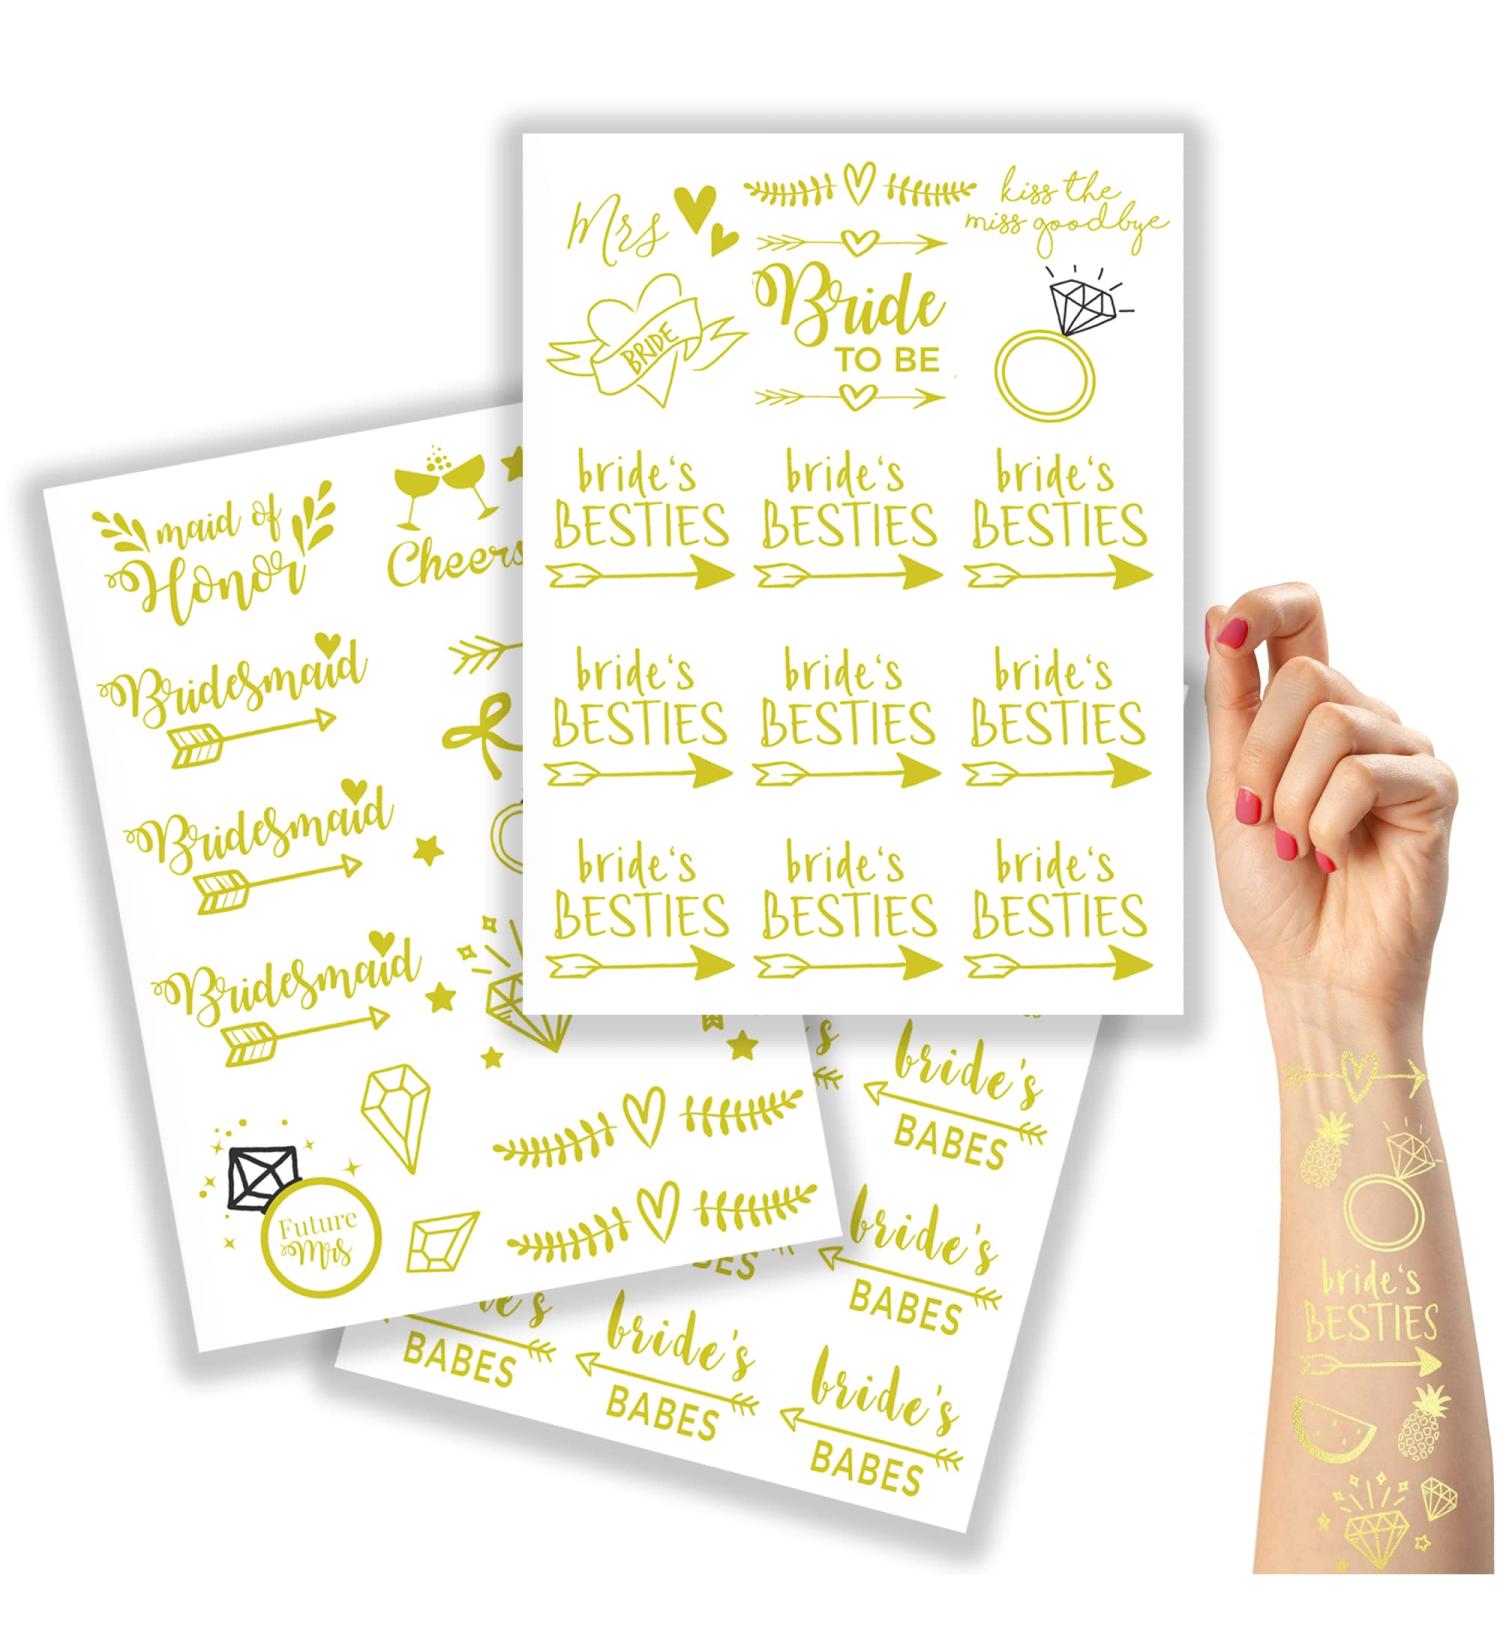 Mrs
kiss the
miss goodbye
BRIDE
Bride
TO BE
bride's
BESTIES
bride's
BESTIES
bride's
BESTIES
bride's
BESTIES
bride's
BESTIES
bride's
BESTIES
bride's
BESTIES
bride's
BESTIES
bride's
BESTIES
maid of
Honor
Cheers
Bridesmaid
Bridesmaid
Bridesmaid
Future
Mrs
bride's
BABES
bride's
BABES
BABES
bride's
BABES
bride's
BABES
bride's
BESTIES